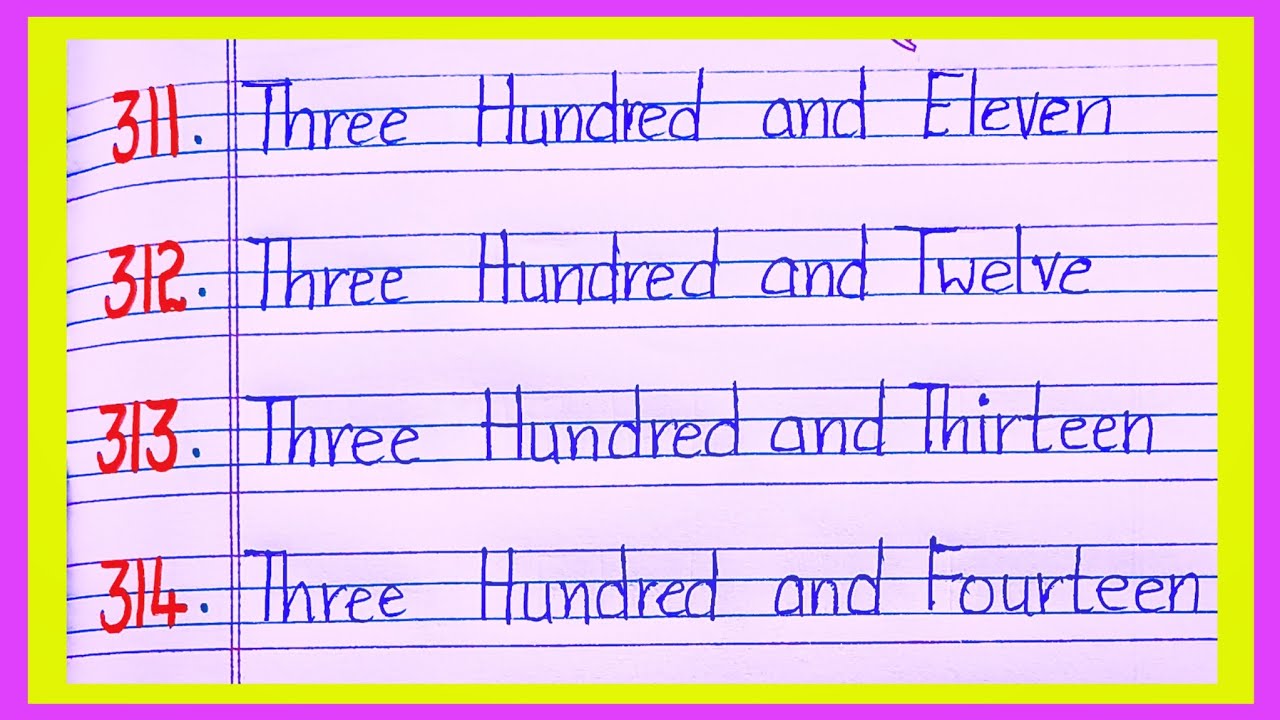 311. Three Hundred and Eleven
312. Three Hundred and Twelve
313. Three Hundred and Thirteen
314. Three Hundred and Fourteen